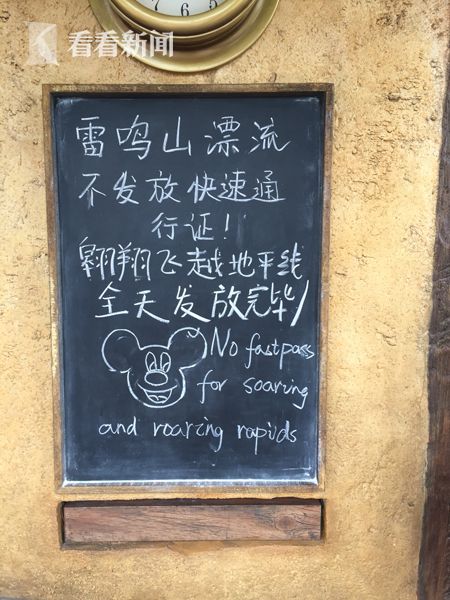 7 6 5
看看新闻
雷鸣山漂流
不发放快速通
行证!
翱翔飞越地平线
全天发放完毕/
No fastpass
for soaring
and roaring rapids